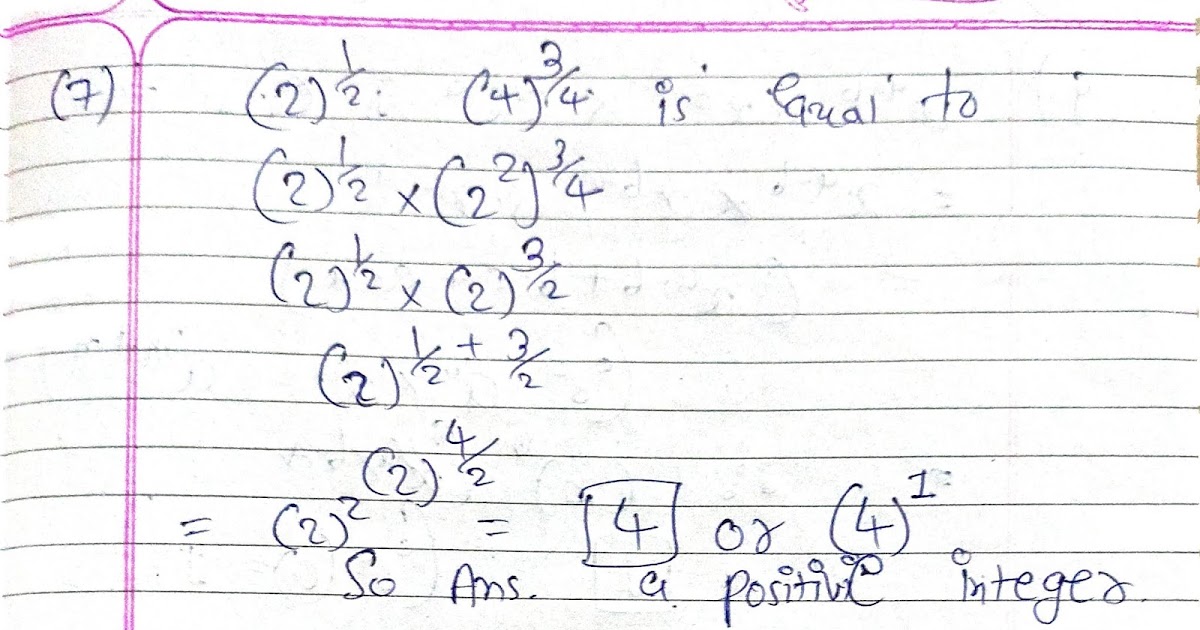 (7). (2)^1/2 . (4)^3/4 is Equal to
(2)^1/2 × (2^2)^3/4
(2)^1/2 × (2)^3/2
(2)^1/2 + 3/2
(2)^4/2
= (2)^2 = 4 or (4)^1
So Ans. a positive integer.